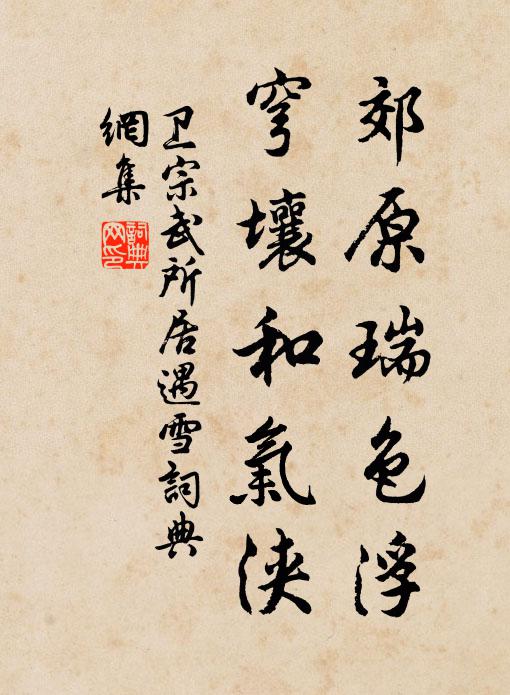 郊原瑞色浮
穹壤和氣浹
卫宗武所居遇雪詞典
網集
詞典
网印